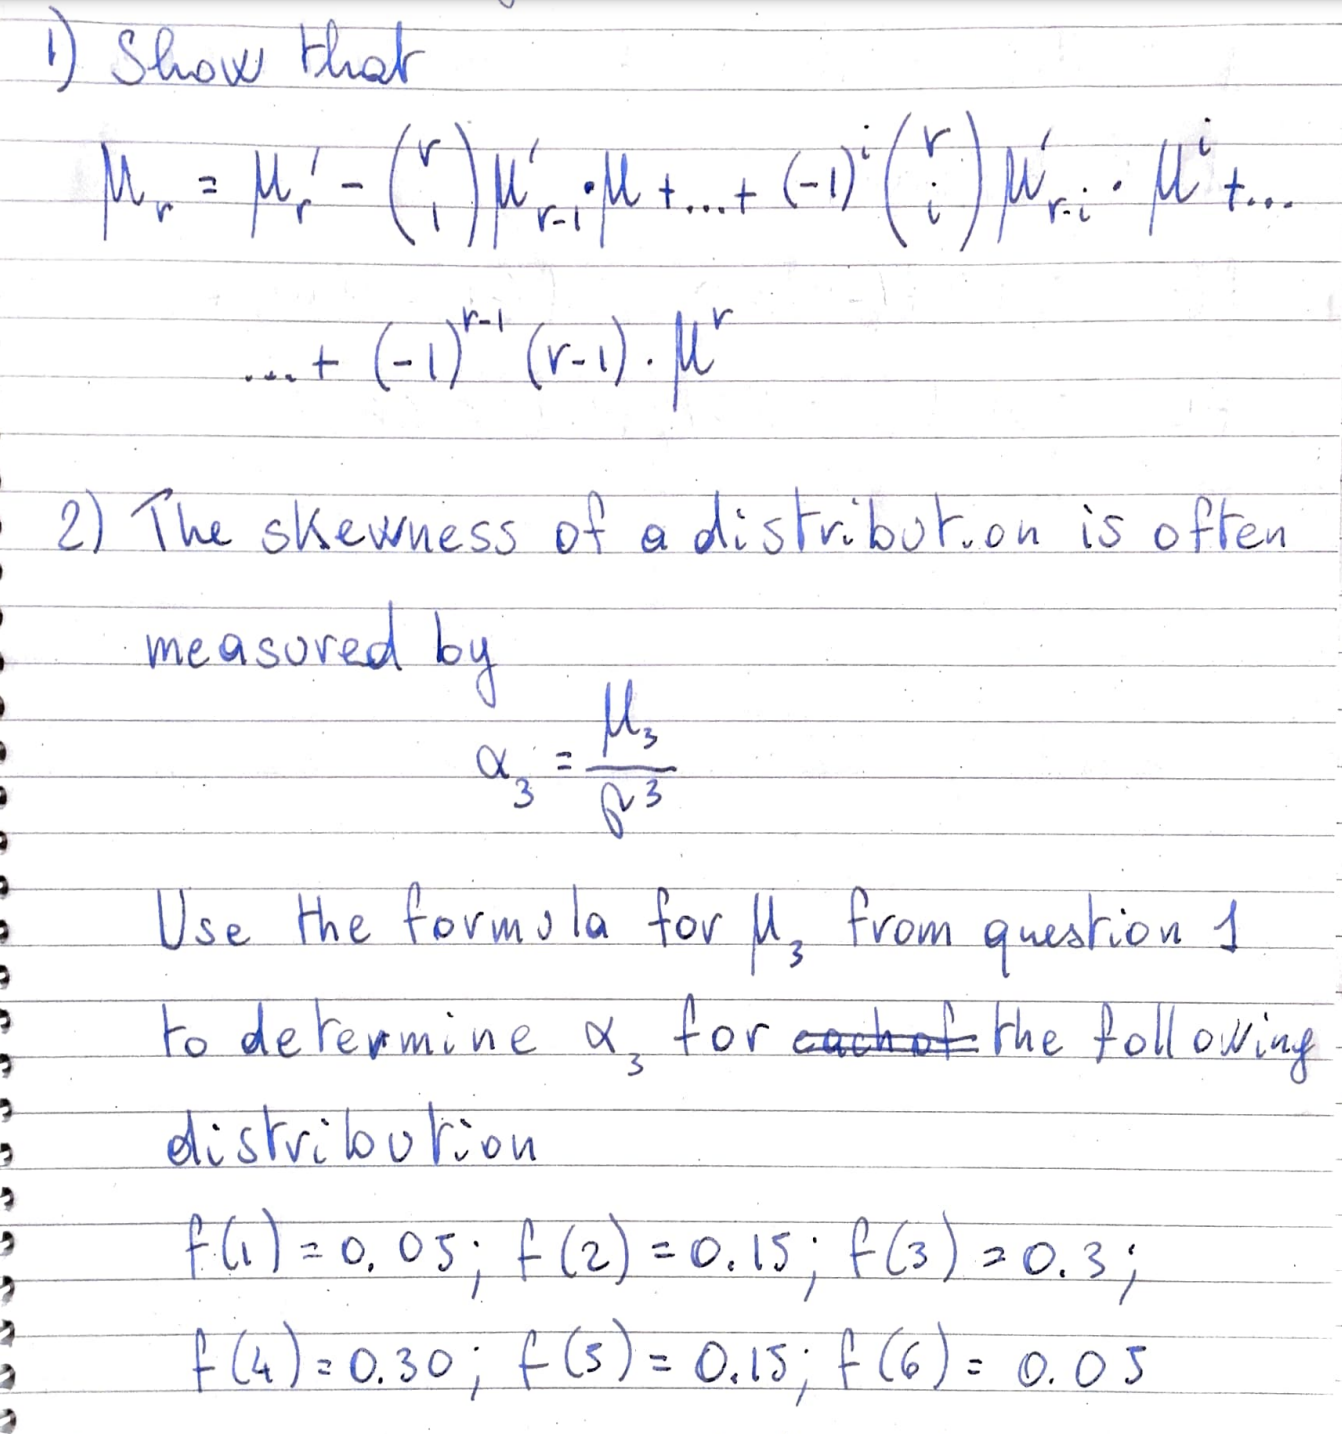 1) Show that
μ_r = μ'_r - (r 1) μ'_{r-1}·μ + ... + (-1)^i (r i) μ'_{r-i} · μ^i + ...
... + (-1)^{r-1} (r-1) · μ^r
2) The skewness of a distribution is often
measured by
α_3 = μ_3 / σ^3
Use the formula for μ_3 from question 1
to determine α_3 for each of the following
distribution
f(1) = 0.05; f(2) = 0.15; f(3) = 0.3;
f(4) = 0.30; f(5) = 0.15; f(6) = 0.05